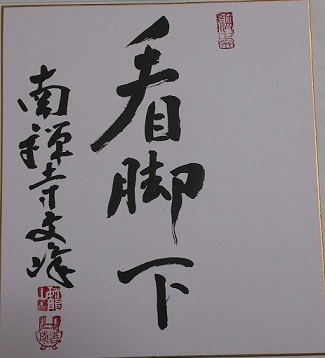 看脚下
南禅寺文峰